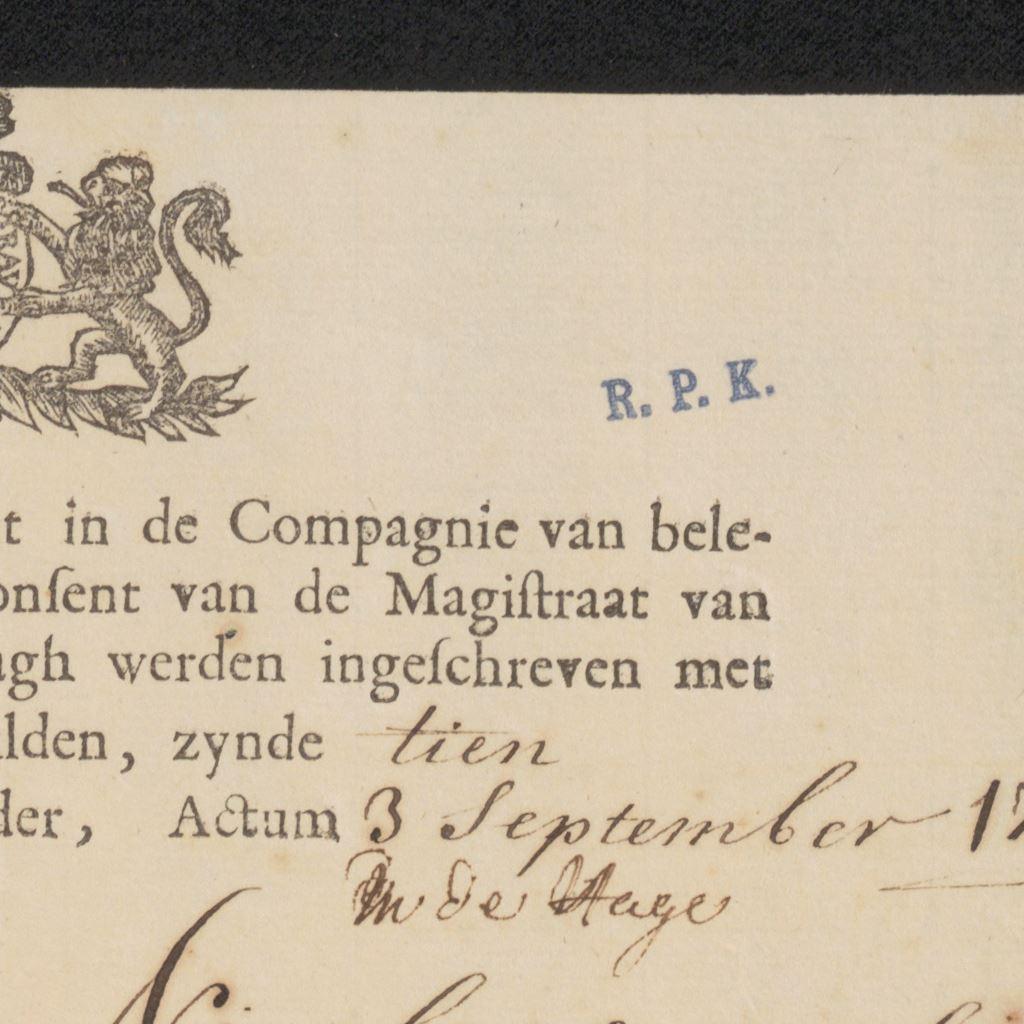 R. P. K.
t in de Compagnie van bele-
onſent van de Magiſtraat van
agh werden ingeſchreven met
lden, zynde tien
der, Actum 3 September 17
In de Hage